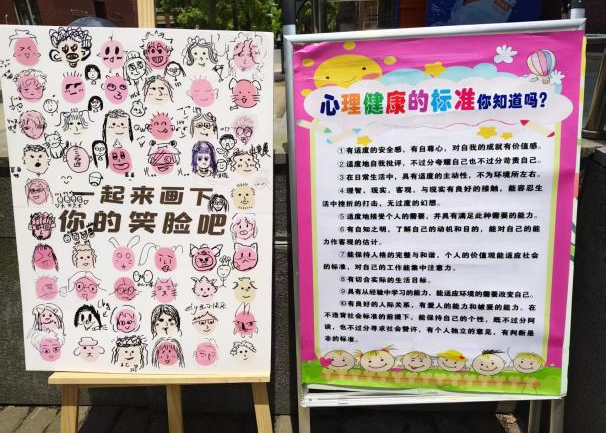 一起来画下
你的笑脸吧
心理健康的标准你知道吗?
①有适度的安全感,有自尊心,对自我的成就有价值感。
②适度地自我批评,不过分夸耀自己也不过分苛责自己。
③在日常生活中,具有适度的主动性,不为环境所左右。
④理智,现实,客观,与现实有良好的接触,能容忍生
活中挫折的打击,无过度的幻想。
⑤适度地接受个人的需要,并具有满足此种需要的能力。
⑥有自知之明,了解自己的动机和目的,能对自己的能
力作客观的估计。
⑦能保持人格的完整与和谐,个人的价值观能适应社会
的标准,对自己的工作能集中注意力。
⑧有切合实际的生活目标。
⑨具有从经验中学习的能力,能适应环境的需要改变自己。
⑩有良好的人际关系,有爱人的能力和被爱的能力。在
不违背社会标准的前提下,能保持自己的个性,既不过分阿
谀,也不过分寻求社会赞许,有个人独立的意见,有判断是
非的标准。